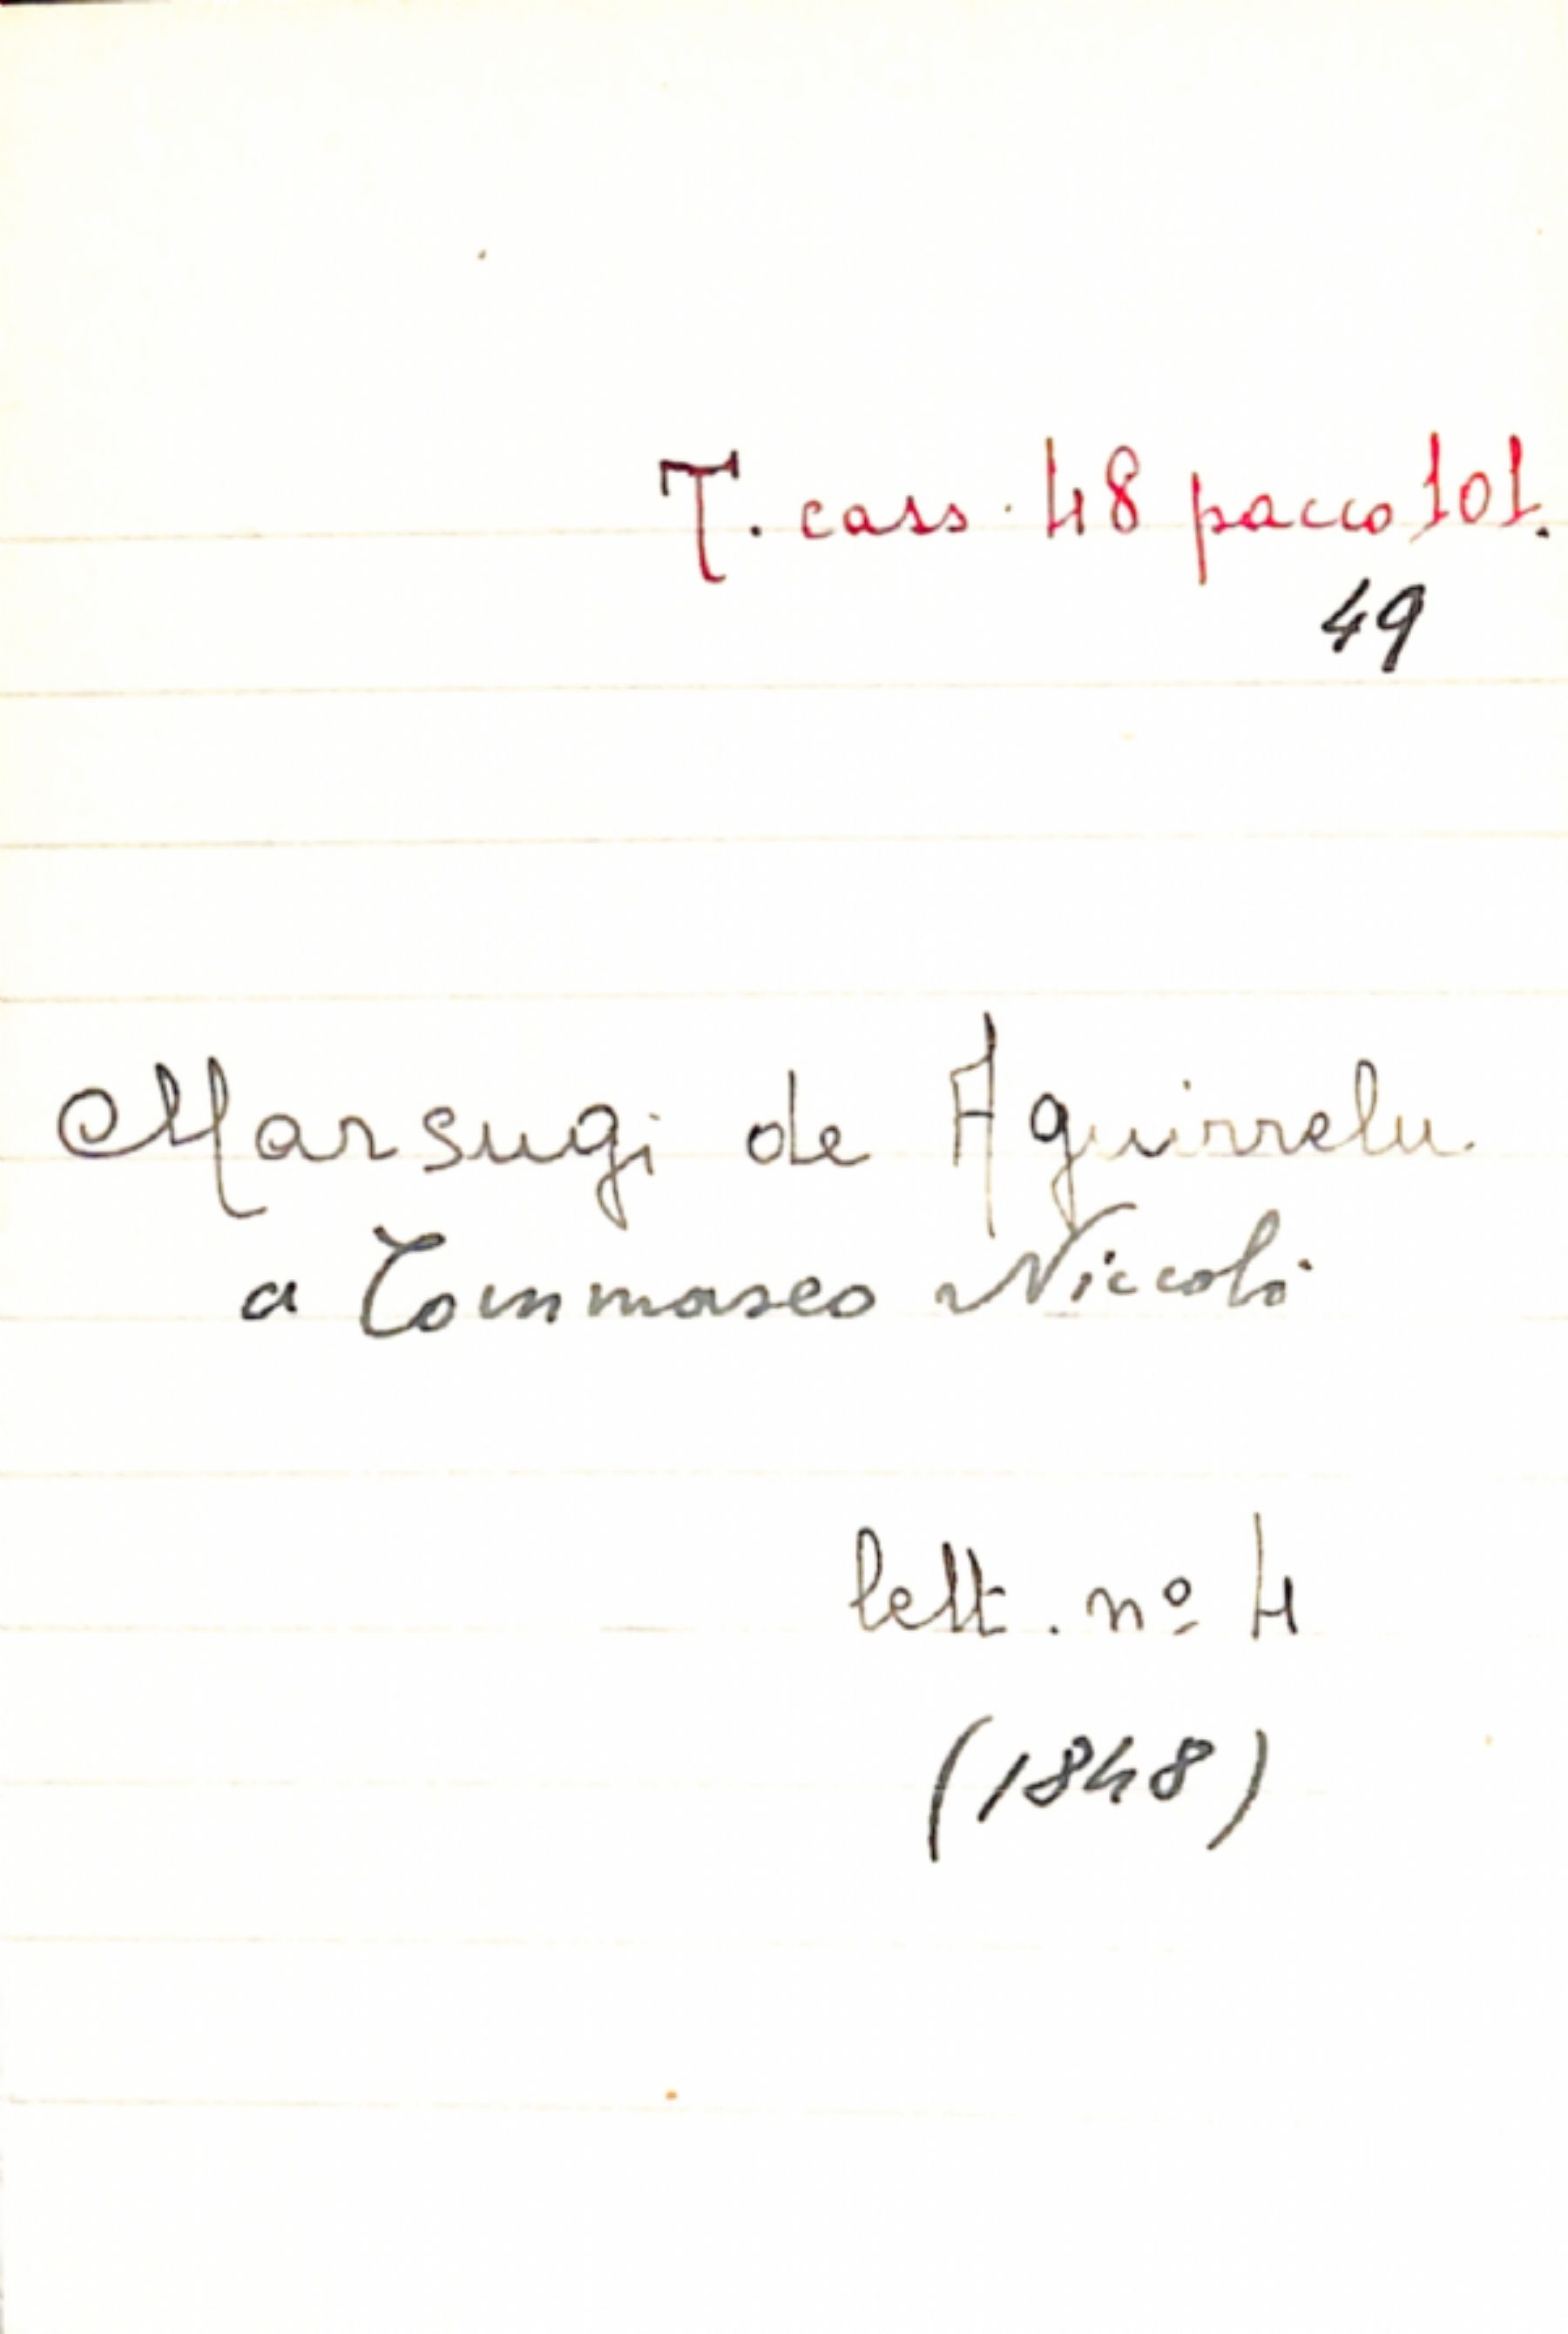 T. cass. 48 pacco 101.
49
Marsugi de Aguirrelu
a Tommaseo Niccolò
lett. nº 4
(1848)